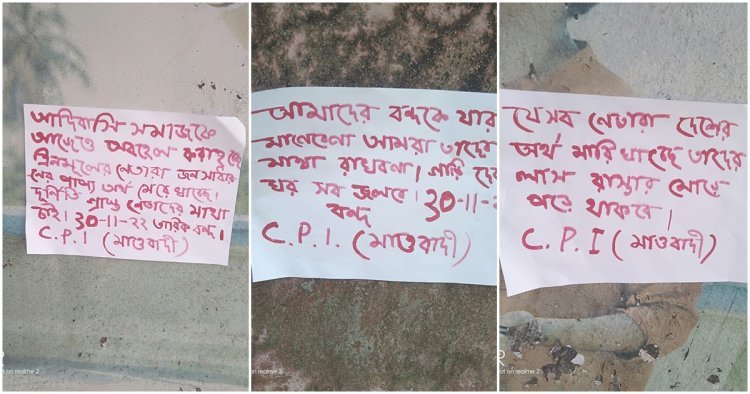 আদিবাসি সমাজকে
আজেও অবহেলা করাহচ্ছে
ত্রিনমূলের নেতারা জনসাধার
নের প্রাপ্য অর্থ মেরে খাচ্ছে।
দুর্নিতি গ্রস্ত নেতাদের মাথা
চাই। 30-11-22 তারিক বন্দ।
C.P.I (মাওবাদী)
আমাদের বন্দকে যার
মানবেনা আমরা তাদের
মাথা রাখবনা। গাড়ি দে
ঘর সব জ্বলবে। 30-11-2
বন্দ
C.P.I. (মাওবাদী)
যে সব নেতারা দেশের
অর্থ মারি খাচ্ছে তাদের
লাস রাস্তার মোড়ে
পরে থাকবে।
C.P.I (মাওবাদী)
ot on realme 2
on realme 2
ot on realme 2